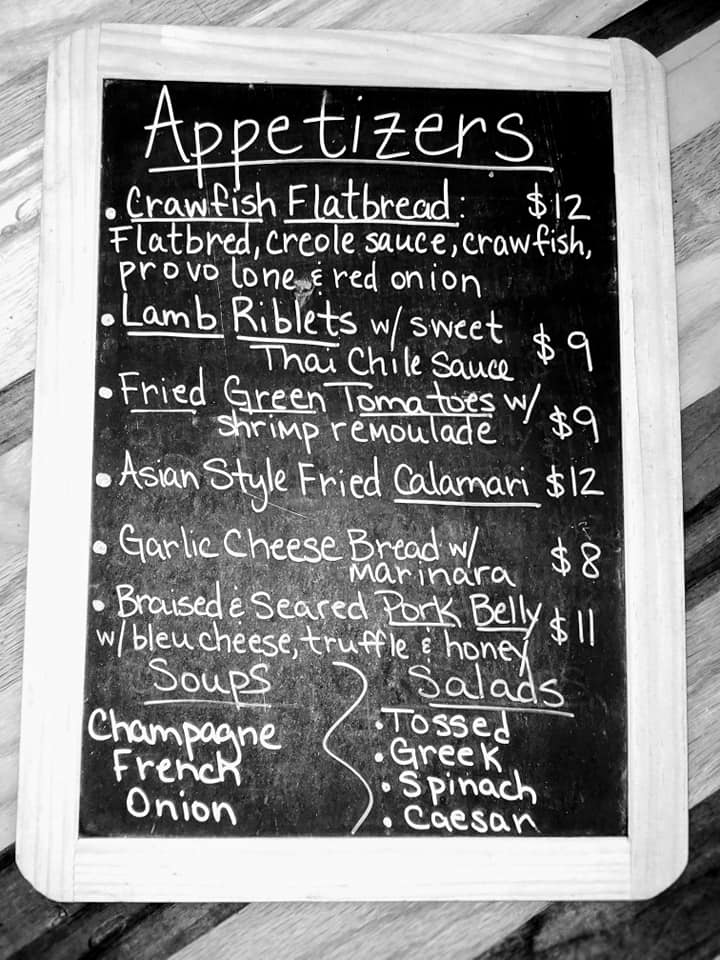 Appetizers
• Crawfish Flatbread: $12
Flatbred, creole sauce, crawfish,
provolone & red onion
• Lamb Riblets w/ sweet
Thai Chile Sauce $9
• Fried Green Tomatoes w/
shrimp remoulade $9
• Asian Style Fried Calamari $12
• Garlic Cheese Bread w/
marinara $8
• Braised & Seared Pork Belly $11
w/ bleu cheese, truffle & honey
Soups
Champagne
French
Onion
Salads
• Tossed
• Greek
• Spinach
• Caesar